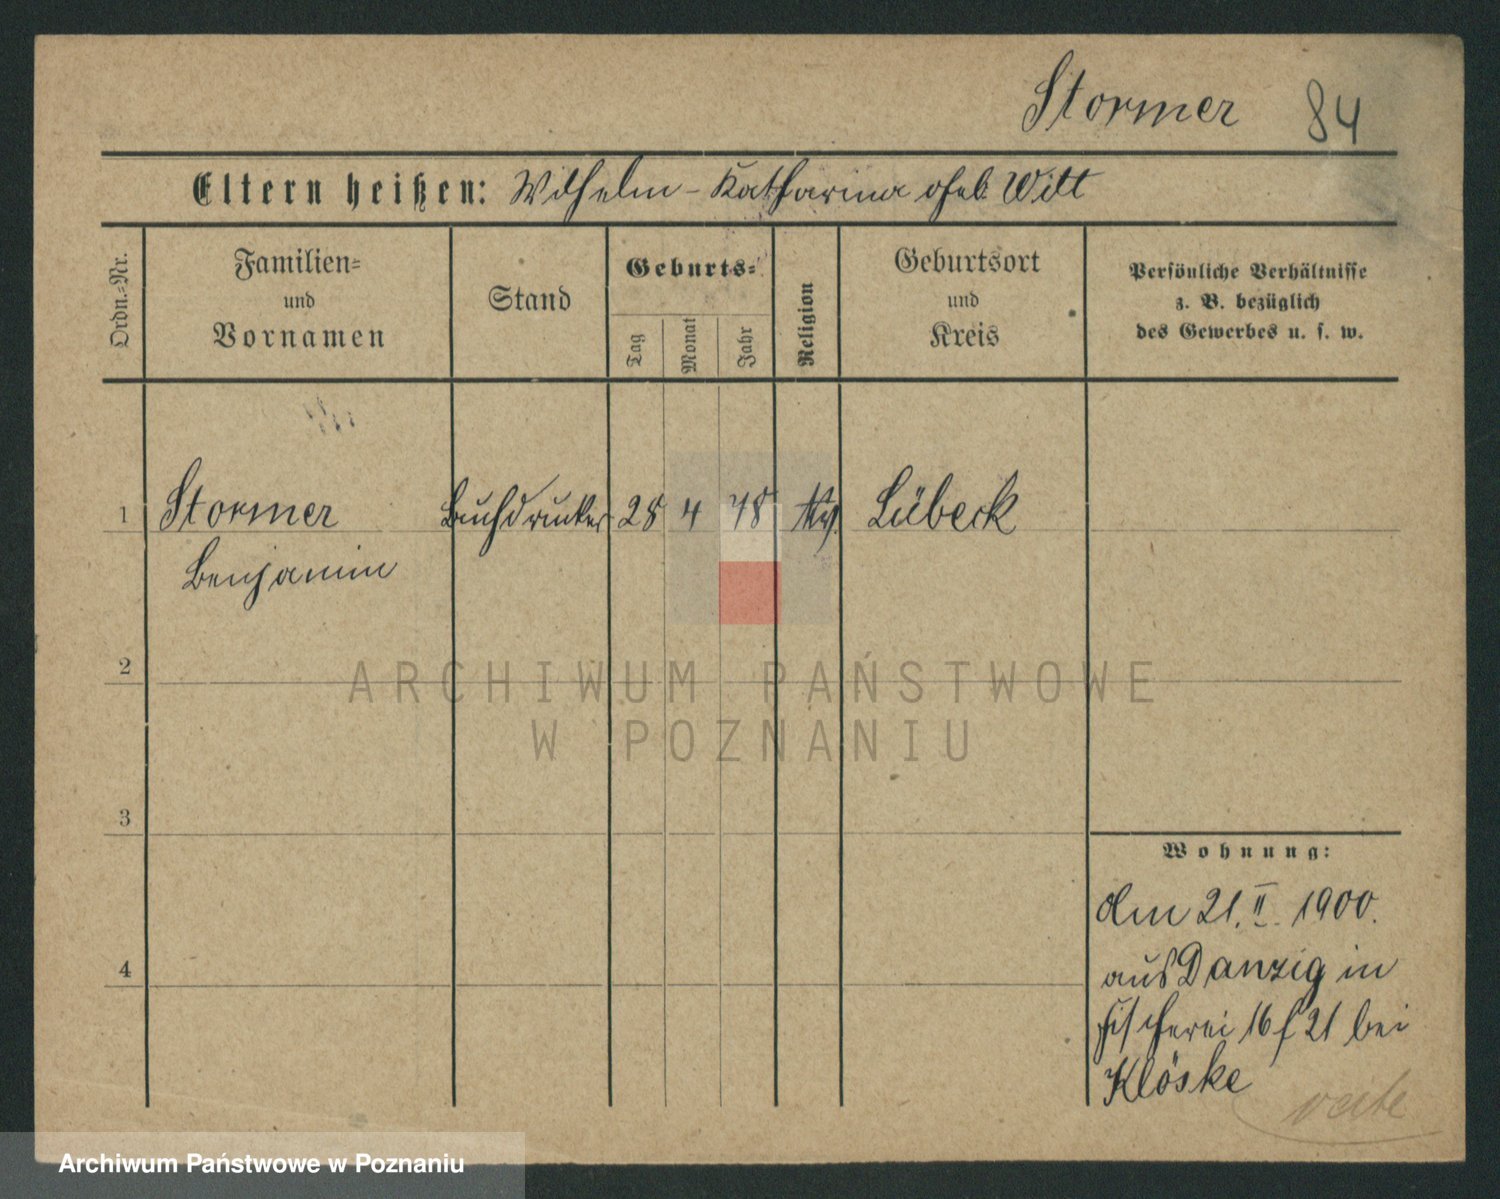 Stormer 84
Eltern heißen: Wilhelm - Katharina geb Witt
Ordn.-Nr.
Familien-
und
Vornamen
Stand
Geburts-
Tag
Monat
Jahr
Religion
Geburtsort
und
Kreis
Persönliche Verhältnisse
z. B. bezüglich
des Gewerbes u. s. w.
1 Stormer Buchdrucker 28 4 78 Lübeck
Benjamin
2
3
4
Wohnung:
Am 21. II. 1900.
aus Danzig in
Fischerei 16 21 bei
Klöske
ARCHIWUM PAŃSTWOWE
W POZNANIU
Archiwum Państwowe w Poznaniu